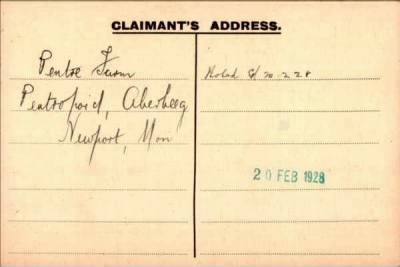 CLAIMANT'S ADDRESS.
Pentre Farm
Pentrapoid, Aberbeeg
Newport, Mon
Noted 20.2.28
20 FEB 1928